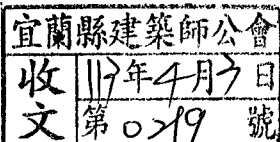 宜蘭縣建築師公會
收文
113年4月3日
第0219號